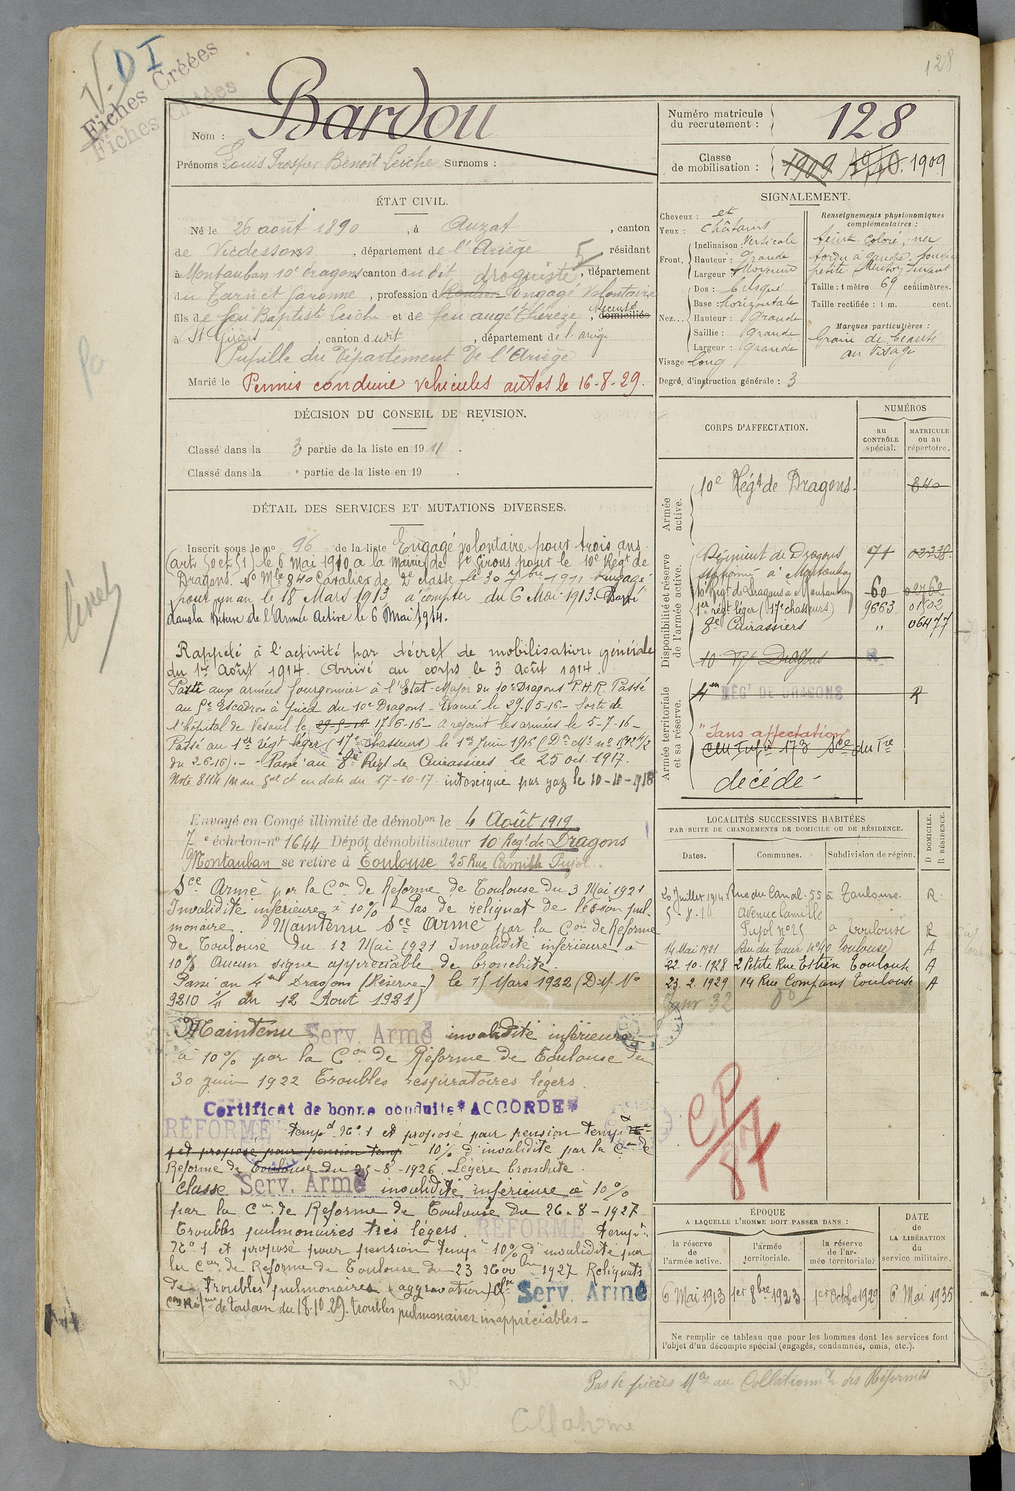 128
V. DI
Fiches Créées
Fiches Créées
Nom : Bardou
Prénoms Louis Prosper Benoit Leiche Surnoms :
Numéro matricule du recrutement : 128
Classe de mobilisation : 1909 1910. 1909
ÉTAT CIVIL.
Né le 26 août 1890, à Auzat, canton
de Vicdessos, département de l'Ariège, résidant
à Montauban 10e dragons canton du dit droguiste, département
du Tarn et Garonne, profession d engagé volontaire
fils de feu Baptiste Leiche et de feu Ange Thérèze, domiciliés
à St Girons, canton dudit, département de l'Ariège
Pupille du Département de l'Ariège
Marié le Permis conduire vehicules autos le 16-8-29.
SIGNALEMENT.
Cheveux : et
Yeux : châtains
Front. Inclinaison : Verticale
Hauteur : Grande
Largeur : Moyenne
Nez... Dos : busqué
Base : horizontale
Hauteur : Grande
Saillie : Grande
Largeur : Grande
Visage long
Renseignements physionomiques complémentaires :
teint coloré, nez
tordu à gauche,
Taille : 1 mètre 69 centimètres.
Taille rectifiée : 1 m. cent.
Marques particulières :
Grain de beauté
au visage
Degré d'instruction générale : 3
DÉCISION DU CONSEIL DE REVISION.
Classé dans la 3 partie de la liste en 1911.
Classé dans la e partie de la liste en 19 .
DÉTAIL DES SERVICES ET MUTATIONS DIVERSES.
Inscrit sous le no 96 de la liste Engagé volontaire pour trois ans
le 6 Mai 1910 à la Mairie de St Girons pour le 10e Régt de
Dragons. No Mle 840 Cavalier de 2e classe le 30 7bre 1911 rengagé
pour un an le 18 Mars 1913 à compter du 6 Mai 1913. Passé
dans la Réserve de l'Armée Active le 6 Mai 1914.
Rappelé à l'activité par décret de mobilisation générale
du 1er Août 1914. Arrivé au corps le 3 août 1914.
Parti aux armées fourgonnier à l'Etat-Major du 10e Dragons P.H.R. Passé
au Escadron à pied du 10e Dragons - Evacué le 29-5-16 - Sorti de
l'hôpital de Vesoul le 17-6-16 - a rejoint les armées le 5-7-16 -
Passé au 1er régt léger (17e chasseurs) le 1er Juin 1916
du 2-6-16) - Passé au 8e Régt de Cuirassiers le 25 oct. 1917.
en date du 17-10-17. intoxiqué par gaz le 20-10-1918
Envoyé en Congé illimité de démobon le 4 Août 1919
7e échelon no 1644 Dépôt démobilisateur 10 Régt de Dragons
Montauban se retire à Toulouse 25 Rue Camille Pujol
Sce Armé par la Con de Réforme de Toulouse du 3 Mai 1921
Invalidité inférieure à 10% Pas de reliquat de lésion pul-
monaire. Maintenu Sce Armé par la Con de Réforme
de Toulouse du 12 Mai 1921 Invalidité inférieure à
10% Aucun signe appréciable de bronchite.
Passé au 4me Dragons (Réserve) le 15 Mars 1922 (D.M. No
9210 1/4 du 12 Aout 1921)
Maintenu Serv. Armé invalidité inférieure
à 10% par la Con de Réforme de Toulouse du
30 juin 1922 Troubles respiratoires légers.
Certificat de bonne conduite "ACCORDE"
RÉFORMÉ temp. No 1 et proposé pour pension temp.
et proposé pour pension temp. 10% d'invalidité par la Con de
Réforme de Toulouse du 25-8-1926. Légère bronchite.
Classé Serv. Armé invalidité inférieure à 10%
par la Con de Réforme de Toulouse du 26-8-1927
Troubles pulmonaires très légers. RÉFORMÉ temp.
No 1 et proposé pour pension temp. 10% d'invalidité par
la Con de Réforme de Toulouse du 23 Nov 1927 Reliquats
de troubles pulmonaires (aggravation) Serv. Armé
de Toulouse du 18.10.29. troubles pulmonaires inappréciables -
CORPS D'AFFECTATION.
NUMÉROS
au CONTRÔLE spécial.
MATRICULE ou au répertoire.
Armée active.
10e Régt de Dragons. 840
Disponibilité et réserve de l'armée active.
Régiment de Dragons 71
stationné à Montauban
10e Régt de Dragons à Montauban 60
1er régt léger (17e chasseurs) 9663 0102
8e Cuirassiers " 06477
10 Rgt Dragons R
Armée territoriale et sa réserve.
4me RÉGt DE DRAGONS R
"Sans affectation"
décédé -
LOCALITÉS SUCCESSIVES HABITÉES
PAR SUITE DE CHANGEMENTS DE DOMICILE OU DE RÉSIDENCE.
Dates. Communes. Subdivision de région. D DOMICILE. R RÉSIDENCE.
20 Juillet 1914 Rue du Canal 55 à Toulouse R
avenue Camille
Pujol no 25 à Toulouse R
14 Mai 1921 Rue du Taur no 40 Toulouse A
22-10-1928 2 Petite Rue St Toulouse A
23.2.1929 14 Rue Compans Toulouse A
32 do
CP
87
ÉPOQUE
A LAQUELLE L'HOMME DOIT PASSER DANS :
la réserve de l'armée active.
l'armée territoriale.
la réserve de l'armée territoriale.
DATE de LA LIBÉRATION du service militaire.
6 Mai 1913 1er 8bre 1923 1er Octobre 1929 6 Mai 1935
Ne remplir ce tableau que pour les hommes dont les services font
l'objet d'un décompte spécial (engagés, condamnés, omis, etc.).
Pas de pièces Mles au Collationnt des Réformés